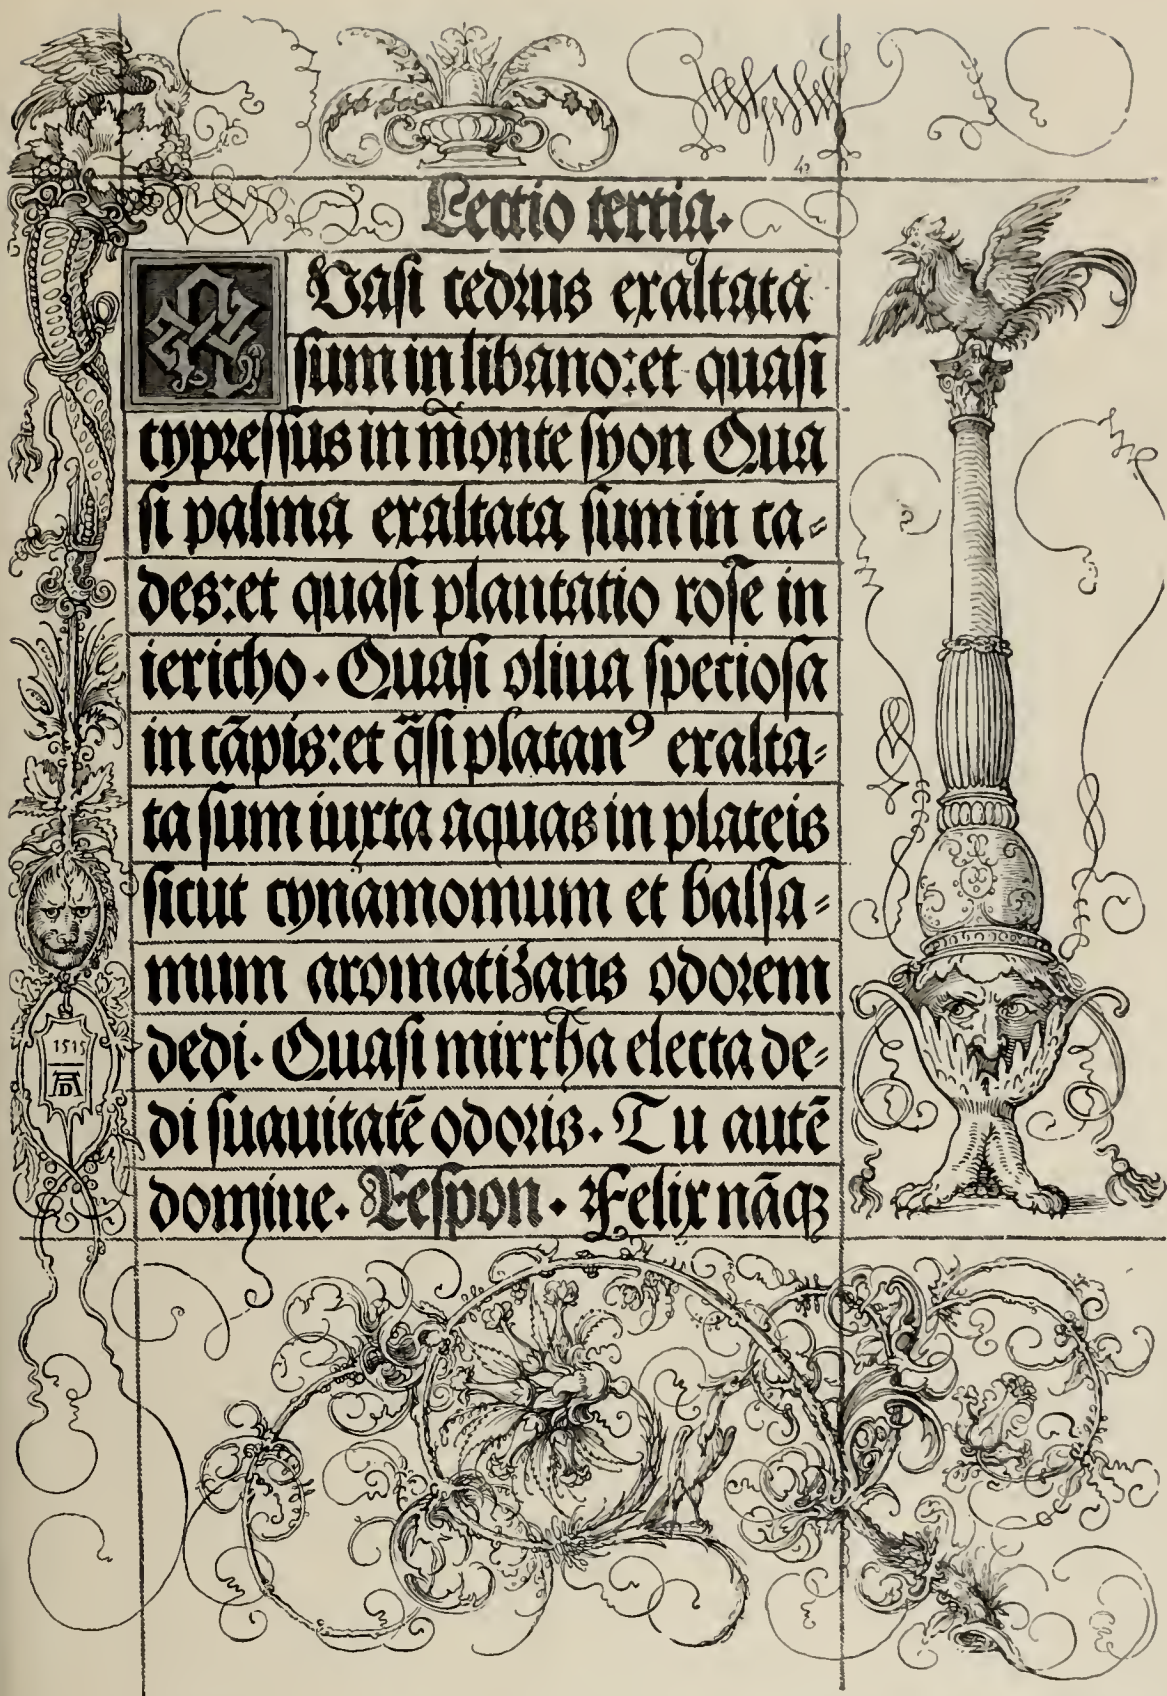 Lectio tertia.
QUasi cedrus exaltata
sum in libano: et quasi
cypressus in mōnte syon Qua
si palma exaltata sum in ca-
des: et quasi plantatio rose in
iericho. Quasi oliua speciosa
in cāpis: et q̄si platanꝰ exalta-
ta sum iuxta aquas in plateis
sicut cynamomum et balsa-
mum aromatizans odorem
dedi. Quasi mirrha electa de-
di suauitatē odoris. Tu autē
domine. Respon. Felix nāqꝫ
1515
AD